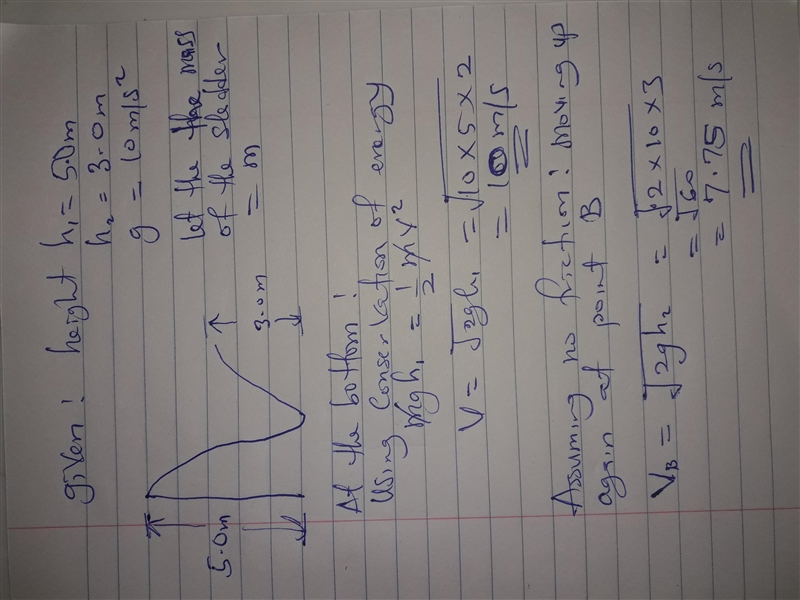 given : height h₁ = 5.0m
h₂ = 3.0m
g = 10m/s²
let the the mass
of the sledder
= m
5.0m
3.0m
At the bottom :
Using Conservation of energy
mgh₁ = 1/2 mv²
V = √2gh₁ = √10×5×2
= 10 m/s
Assuming no friction : moving up
again at point B
V_B = √2gh₂ = √2×10×3
= √60
= 7.75 m/s